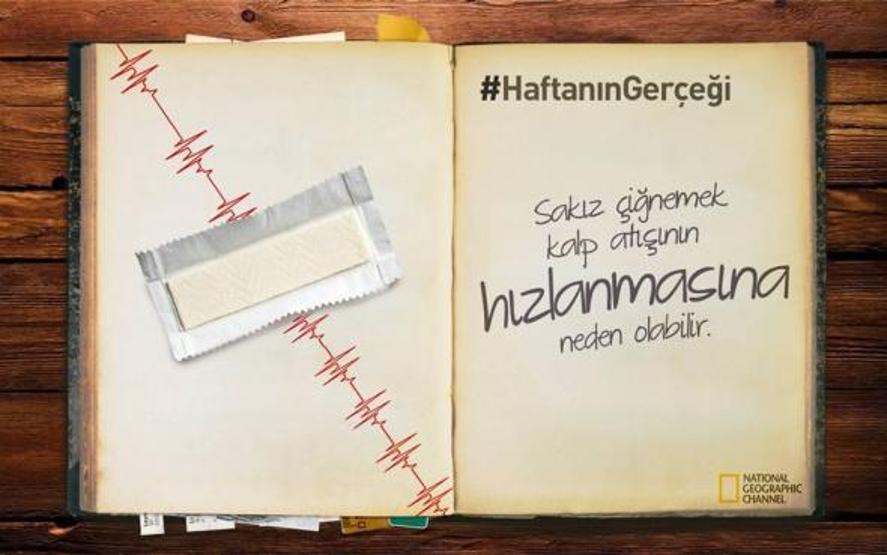 #HaftanınGerçeği
Sakız çiğnemek
kalp atışının
hızlanmasına
neden olabilir.
NATIONAL
GEOGRAPHIC
CHANNEL